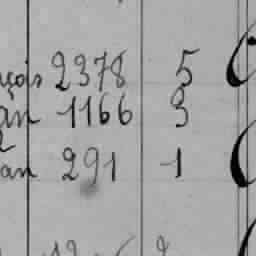 çois 2378 5
an 1166 3
an 291 1